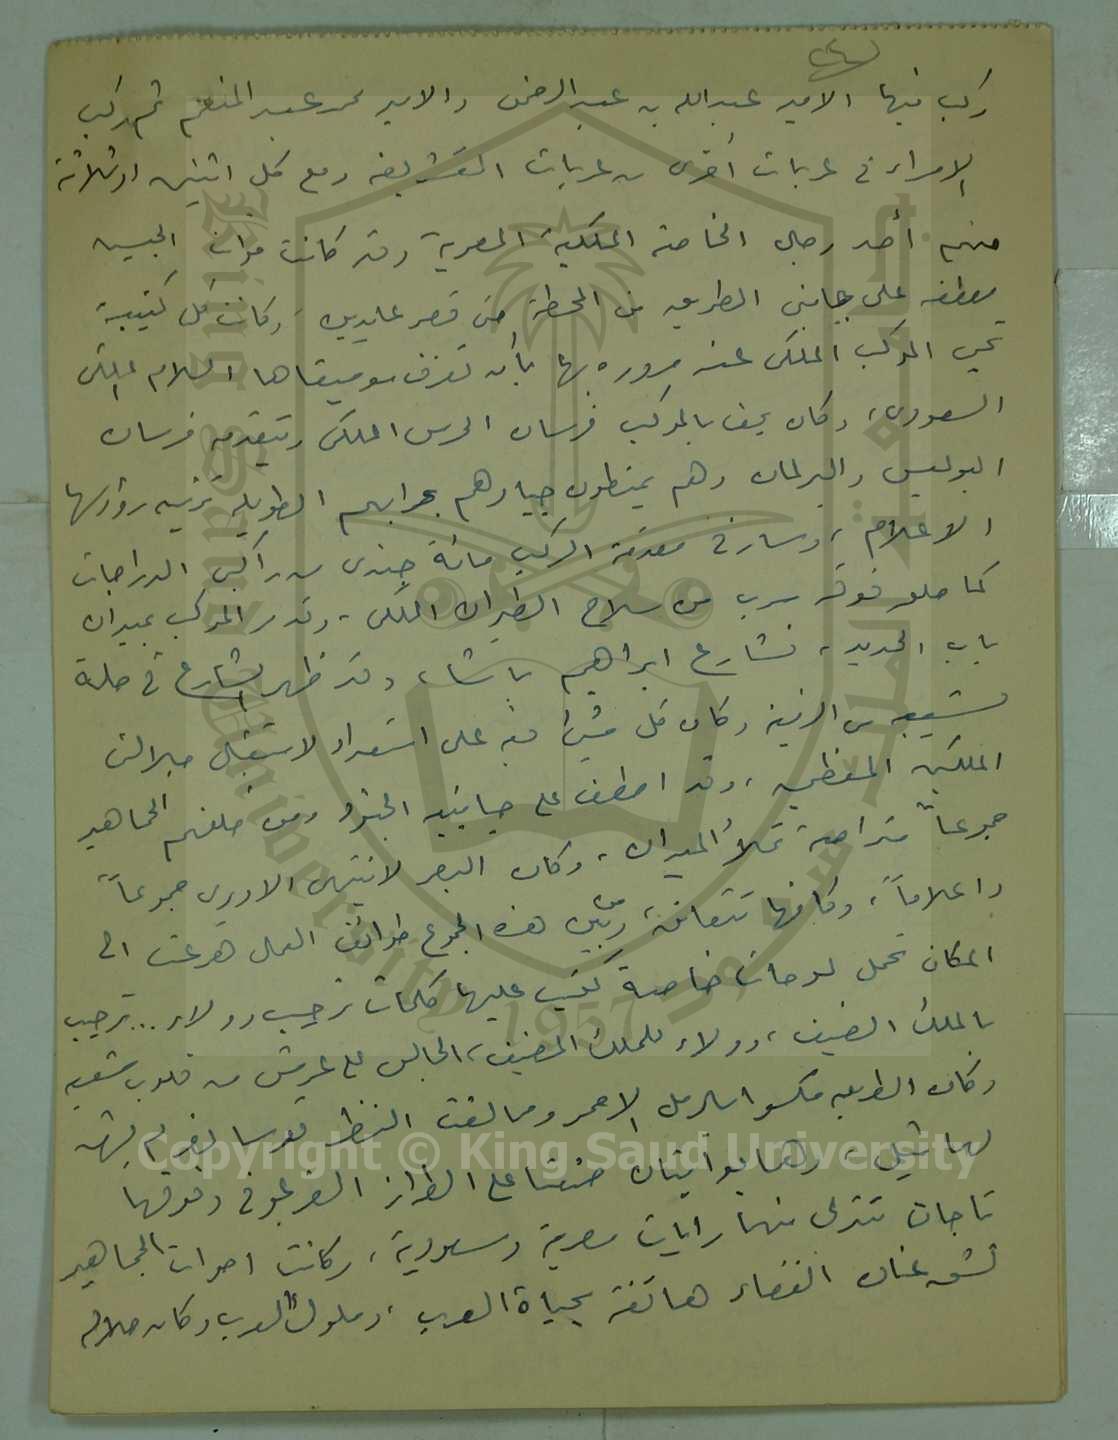 ركب فيها الامير عبدالله بن عبدالرحمن والامير محمد عبد المنعم ثم ركب
الامراء في عربات أخرى من عربات التشريفه ومع كل اثنين او ثلاثة
منهم أحد رجال الخاصة الملكية المصرية وقد كانت قوات الجيش
مصطفه على جانبي الطريق من المحطة حتى قصر عابدين، وكانت كل كتيبة
تحيي الموكب الملكى عند مروره بها بأن تعزف موسيقاها السلام الملكى
السعودى، وكان يحف بالموكب فرسان الحرس الملكى ويتقدمه فرسان
البوليس والبرلمان وهم يمتطون جيادهم بحرابهم الطويلة تزينه رؤوسها
الاعلام، وسار في مقدمة الركب مائة جندى من راكبى الدراجات
كما حلق فوقه سرب من سلاح الطيران الملكى، وقد مر الموكب بميدان
باب الحديد، فشارع ابراهيم باشا، وقد ظهر الشارع في حلة
قشيبه من الزينه وكان كل شئ فيه على استعداد لاستقبال جلالتى
الملكين المعظمين، وقد اصطف على جانبيه الجنود ومن خلفهم الجماهير
جموعاً متراصة تملأ الميدان، وكان البصر لا ينتهى الا ويرى جموعاً
واعلاماً، وكأنها تتعانق، ومن بين هذه الجموع طوائف العمال هرعت الى
المكان تحمل لوحات خاصة كتب عليها كلمات ترحيب وولاء... ترحيب
بالملك الضيف، وولاء للملك المضيف، الجالس على عرش من قلوب شعبه
وكان الطريق مكسوا بالرمل الاحمر ومما لفت النظر قوسا نصر لم يشهد
لهما مثيل، وهما بوابتان صنعتا على الطراز الفرعونى وفوقها
تاجان تتدلى منها رايات مصرية وسعودية، وكانت اصوات الجماهير
تشق عنان الفضاء هاتفة بحياة العرب، وملوك العرب وكان جلالة
King Saud University
1957
جامعة الملك سعود
Copyright © King Saud University